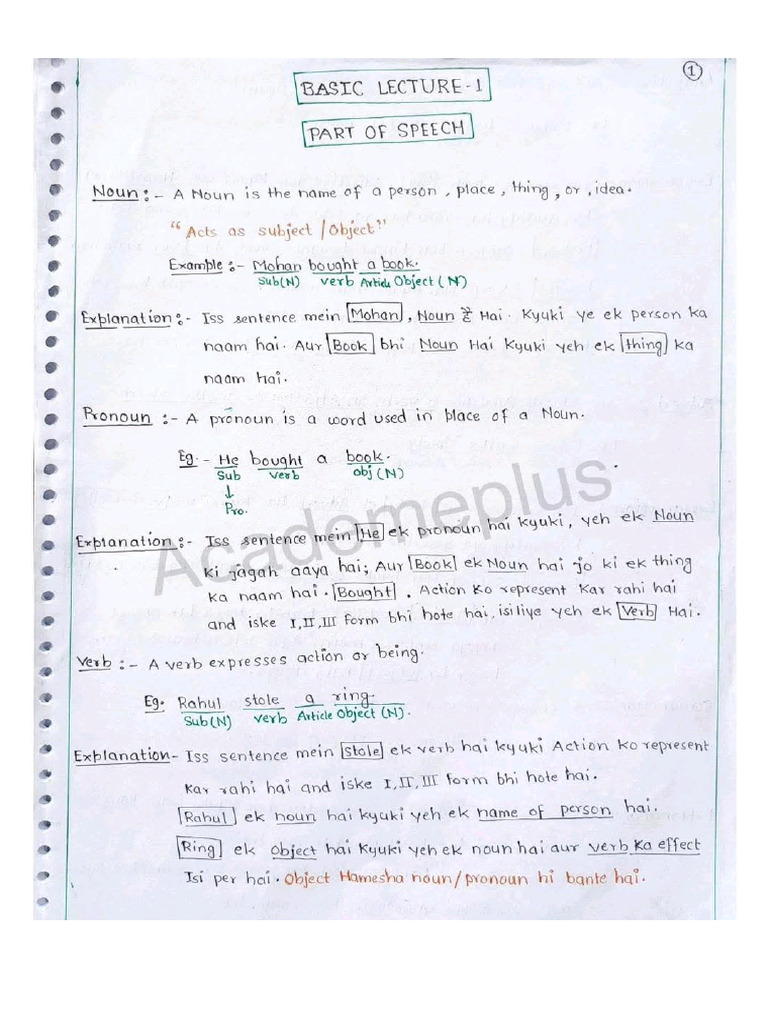 1
BASIC LECTURE-1
PART OF SPEECH
Noun :- A Noun is the name of a person, place, thing, or, idea.
"Acts as subject / Object"
Example :- Mohan bought a book.
Sub(N) verb Article Object (N)
Explanation :- Iss sentence mein Mohan, Noun है Hai. Kyuki ye ek person ka
naam hai. Aur Book bhi Noun Hai Kyuki yeh ek thing ka
naam Hai.
Pronoun :- A pronoun is a word used in place of a Noun.
Eg. - He bought a book.
Sub verb obj (N)
↓
Pro.
Explanation :- Iss sentence mein He ek pronoun hai kyuki, yeh ek Noun
ki jagah aaya hai; Aur Book ek Noun hai jo ki ek thing
ka naam hai. Bought. Action ko represent kar rahi hai
and iske I, II, III form bhi hote hai, isiliye yeh ek Verb Hai.
Verb :- A verb expresses action or being.
Eg. Rahul stole a ring.
Sub(N) verb Article Object (N).
Explanation - Iss sentence mein stole ek verb hai kyuki Action ko represent
Kar rahi hai and iske I, II, III form bhi hote hai.
Rahul ek noun hai kyuki yeh ek name of person hai.
Ring ek Object hai Kyuki yeh ek noun hai aur verb ka effect
Isi per hai. Object Hamesha noun/pronoun hi bante hai.
Academeplus